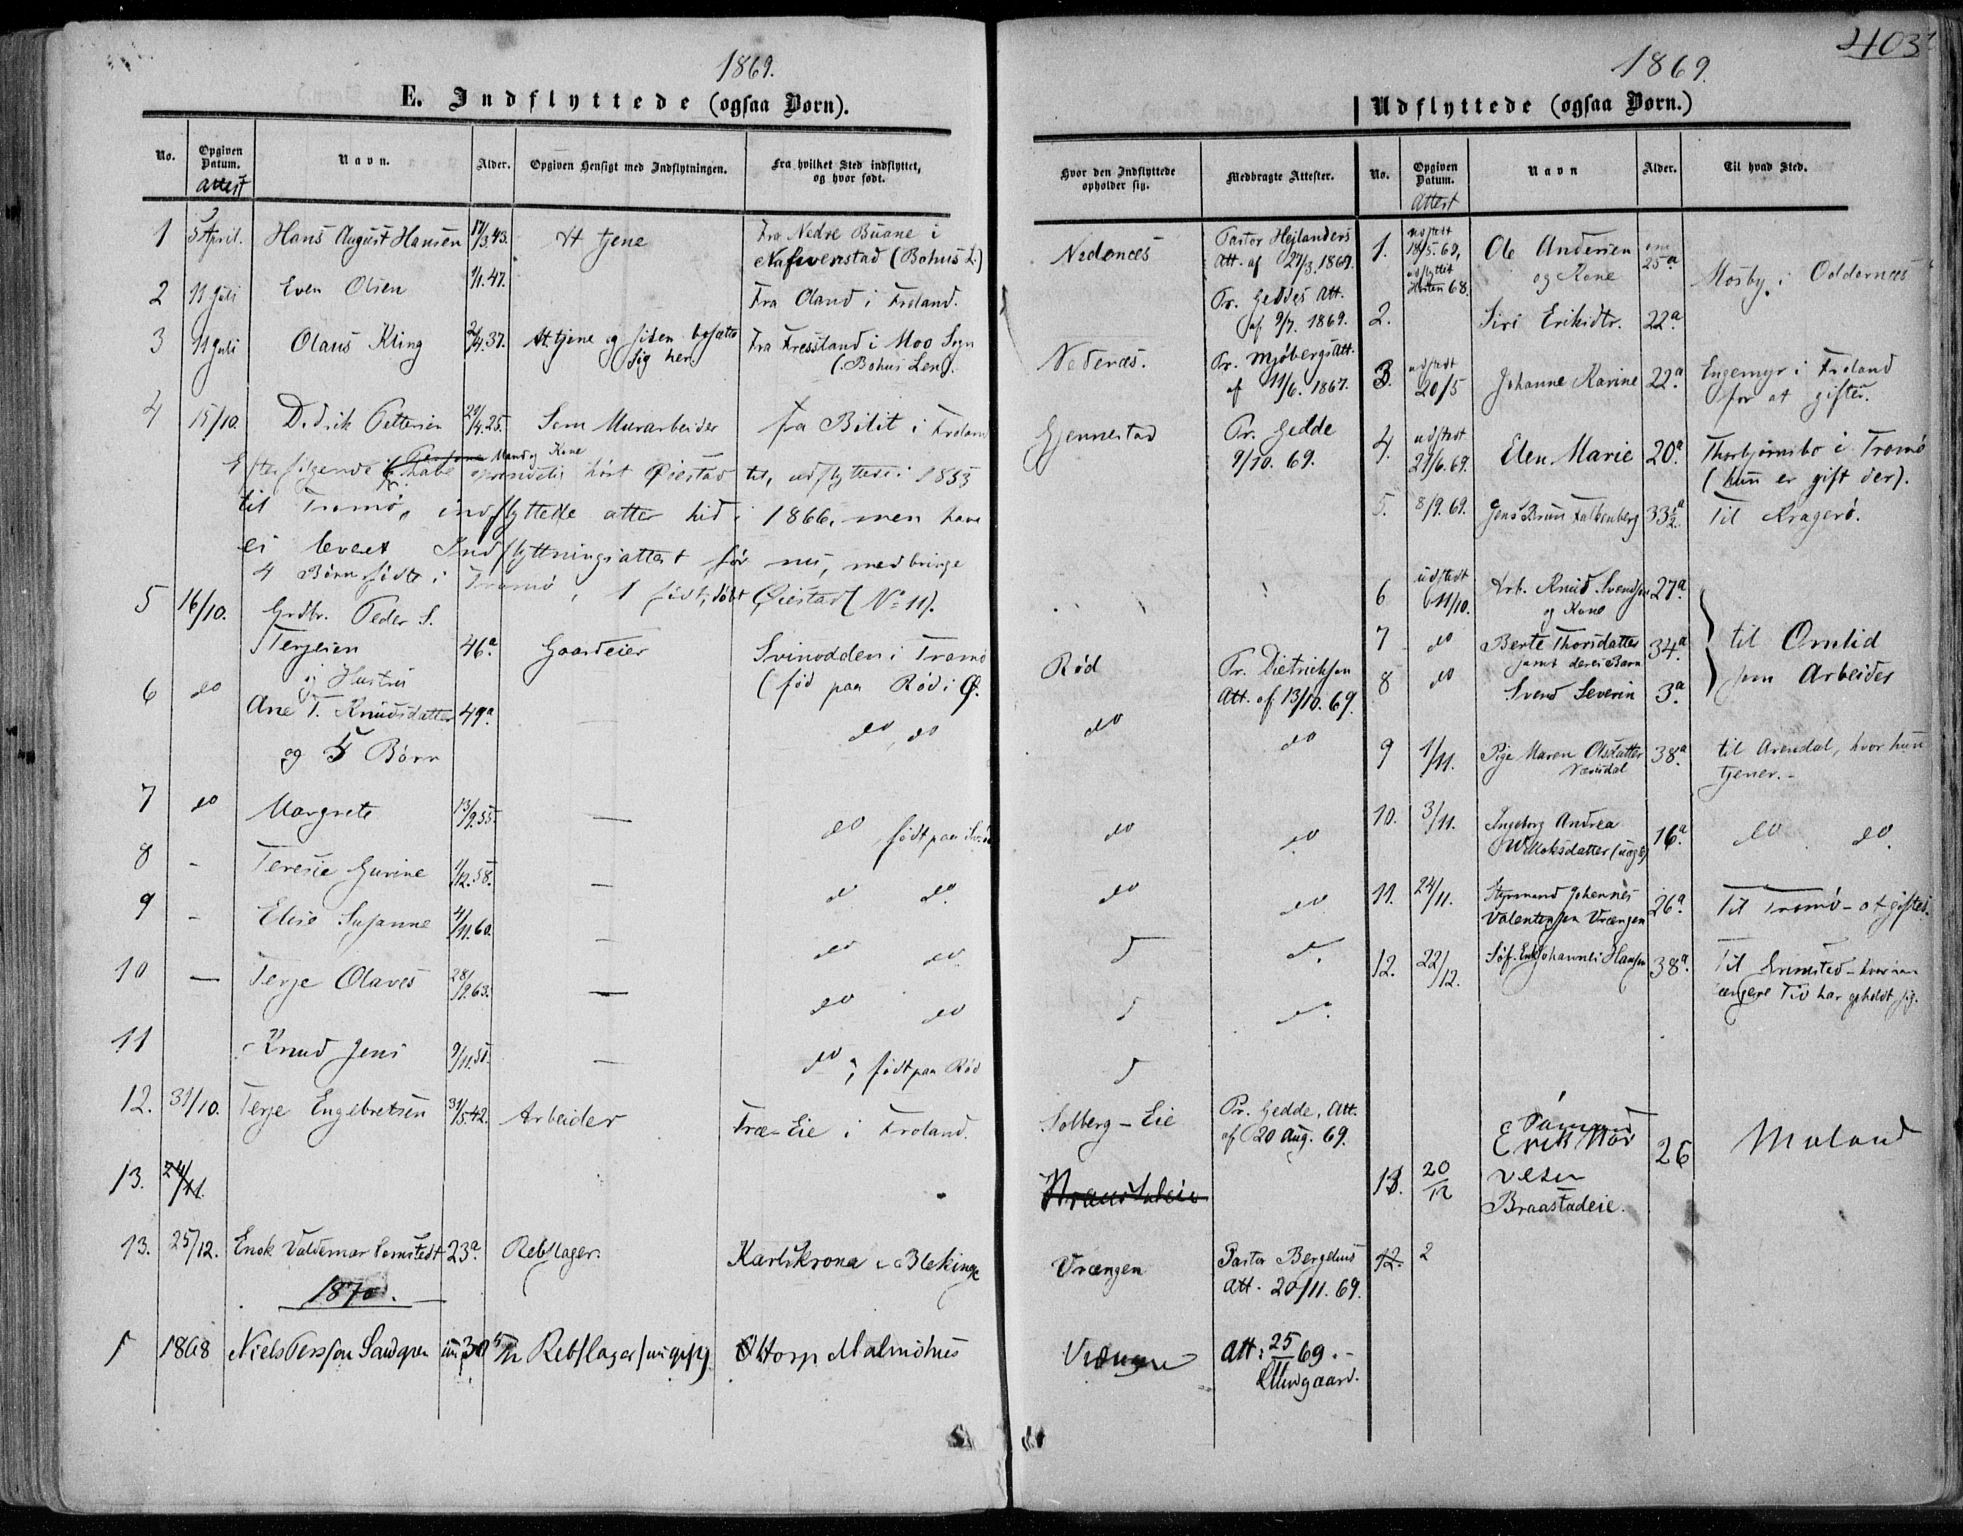 1869.
E. Indflyttede (ogsaa Børn).
No.
Opgiven Datum.
Attest
Navn.
Alder.
Opgiven Hensigt med Indflytningen.
Fra hvilket Sted indflyttet,
og hvor født.
1 5 April. Hans August Hansen 17/3.43. At tjene Fra Nedre Buane i
Nafverstad (Bohus L.)
2 11 Juli Even Olsen 1/1.47. Fra Oland i Froland.
3 11 Juli Olaus Kling 2/4.37. At tjene og siden bosætte Fra Fressland i Moo Sogn
sig her. (Bohus Len).
4 15/10. Didrik Pettersen 29/4.25. Som Murarbeider fra Bilit i Froland
Efterfølgende Mand og Kone
have oprindelig hørt Øiestad til, udflyttede i 1853
til Tromø, indflyttede atter hid i 1866, men have
ei leveret Indflyttningsattest før nu, medbringe
4 Børn fødte i Tromø, 1 født, døbt Øiestad (No 11).
5 16/10. Grdbr. Peder S.
Terjesen 46a Gaardeier Svinodden i Tromø
og Hustru (fød paa Rød i Ø.
6 do Ane T. Knudsdatter 49a — do, do
og 5 Børn
7 do Margrete 13/9.55. — do født paa
8 - Teresie Gurine 1/12.58. — do do.
9 - Elise Susanne 4/11.60. — do do
10 — Terje Olaves 28/9.63. — do do
11 Knud Jens — do, født paa Rød
12. 31/10. Terje Engebretsen 31/5.42. Arbeider Træ-Eie i Froland.
13. 24/11.
13. 25/12. Enok Valdemar 23a Rebslager. Karlskrona i Blekinge
1870.
1 1868 Niels Persson Sandgren Rebslager Malmöhus
1869.
403
Udflyttede (ogsaa Børn.)
Hvor den Indflyttede
opholder sig.
Medbragte Attester.
No.
Opgiven Datum.
Attest
Navn
Alder.
Til hvad Sted.
Nedenæs Pastor Hejlanders
Att. af 27/3.1869.
Pr. Geddes Att.
af 9/7. 1869.
Nedenæs. Pr. Mjöbergs Att.
af 11/6. 1867.
Gjennestad Pr. Gedde
9/10. 69.
Rød Pr. Dietrichson
Att. af 13/10.69.
do do
do do
do do
Solberg-Eie Pr. Gedde, Att.
af 20 Aug. 69.
Vrængen Pastor Bergelius
Att. 20/11.69.
Att: 25/ 69.-
1. udstedt 18/5.69, Ole Andersen om 25a
udflyttet Høsten 68. og Kone Mosby i Oddernæs
2. Siri Eriksdtr. 22a
3. udstedt 20/5 Johanne Karine 22a. Engemyr i Froland
for at giftes.
4. udstedt 29/6.69. Elen Marie 20a. Thorbjørnsbo i Tromø
(hun er gift der).
5. 8/9.69. Jens Bruun Falkenberg 33½a Til Kragerø.
6 udstedt 11/10. Arb. Knud Svendsen 27a.
og Kone
7 do Berte Thorsdatter 34a. til Omlid
samt deres Barn
8 do Svend Severin 3a. som Arbeider
9 1/11. Pige Maren Olsdatter 38a til Arendal, hvor hun
tjener.-
10. 3/11. Ingeborg Andrea 16a. do do.
11. 24/11. Styrmand Johannes 26a. Til Tromø - at giftes.
Valentinsen Vrængen
12. 22/12. Johannes Hansen 38a. Til Grimstad - hvor han
længere Tid har opholdt sig.
13. 20/12 Erik 26 Moland
Braastadeie.
12. 2